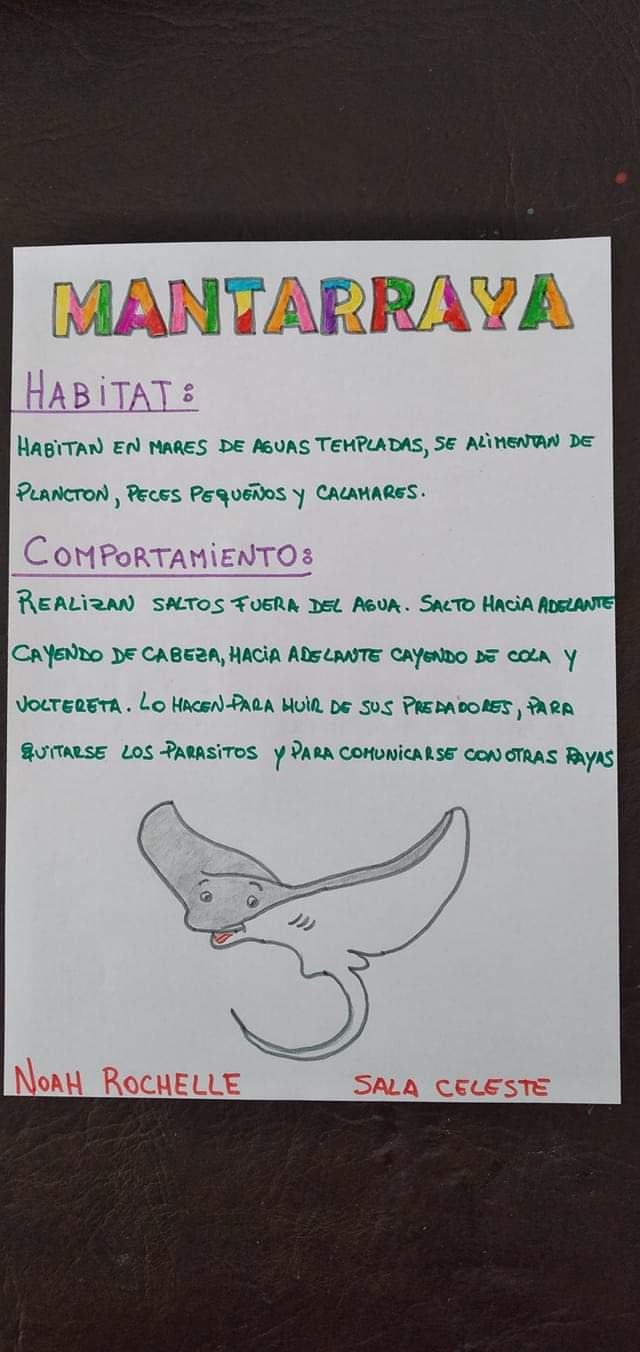 MANTARRAYA
HABITAT:
HABITAN EN MARES DE AGUAS TEMPLADAS, SE ALIMENTAN DE
PLANCTON, PECES PEQUEÑOS Y CALAMARES.
COMPORTAMIENTO:
REALIZAN SALTOS FUERA DEL AGUA. SALTO HACIA ADELANTE
CAYENDO DE CABEZA, HACIA ADELANTE CAYENDO DE COLA Y
VOLTERETA. LO HACEN PARA HUIR DE SUS PREDADORES, PARA
QUITARSE LOS PARASITOS Y PARA COMUNICARSE CON OTRAS RAYAS
NOAH ROCHELLE SALA CELESTE